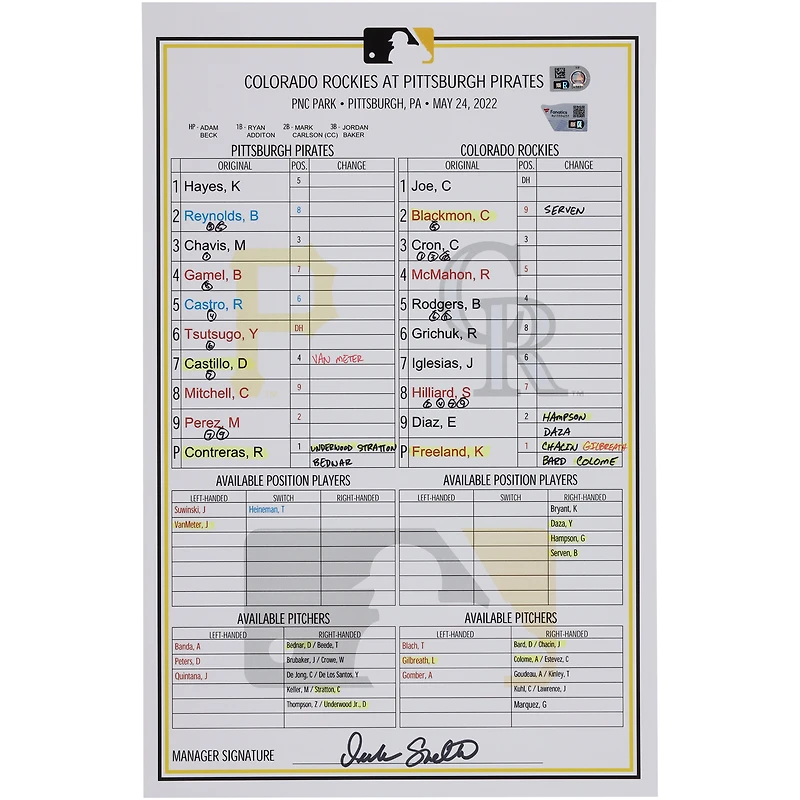 COLORADO ROCKIES AT PITTSBURGH PIRATES
PNC PARK • PITTSBURGH, PA • MAY 24, 2022
HP - ADAM BECK 1B - RYAN ADDITON 2B - MARK CARLSON (CC) 3B - JORDAN BAKER
PITTSBURGH PIRATES
ORIGINAL POS. CHANGE
1 Hayes, K 5
2 Reynolds, B 8
3 Chavis, M 3
4 Gamel, B 7
5 Castro, R 6
6 Tsutsugo, Y DH
7 Castillo, D 4 VAN METER
8 Mitchell, C 9
9 Perez, M 2
P Contreras, R 1 UNDERWOOD STRATTON
BEDNAR
COLORADO ROCKIES
ORIGINAL POS. CHANGE
1 Joe, C DH
2 Blackmon, C 9 SERVEN
3 Cron, C 3
4 McMahon, R 5
5 Rodgers, B 4
6 Grichuk, R 8
7 Iglesias, J 6
8 Hilliard, S 7
9 Diaz, E 2 HAMPSON
DAZA
P Freeland, K 1 CHACIN GILBREATH
BARD COLOME
AVAILABLE POSITION PLAYERS
LEFT-HANDED SWITCH RIGHT-HANDED
Suwinski, J Heineman, T
VanMeter, J
AVAILABLE POSITION PLAYERS
LEFT-HANDED SWITCH RIGHT-HANDED
Bryant, K
Daza, Y
Hampson, G
Serven, B
AVAILABLE PITCHERS
LEFT-HANDED RIGHT-HANDED
Banda, A Bednar, D / Beede, T
Peters, D Brubaker, J / Crowe, W
Quintana, J De Jong, C / De Los Santos, Y
Keller, M / Stratton, C
Thompson, Z / Underwood Jr., D
AVAILABLE PITCHERS
LEFT-HANDED RIGHT-HANDED
Blach, T Bard, D / Chacin, J
Gilbreath, L Colome, A / Estevez, C
Gomber, A Goudeau, A / Kinley, T
Kuhl, C / Lawrence, J
Marquez, G
MANAGER SIGNATURE